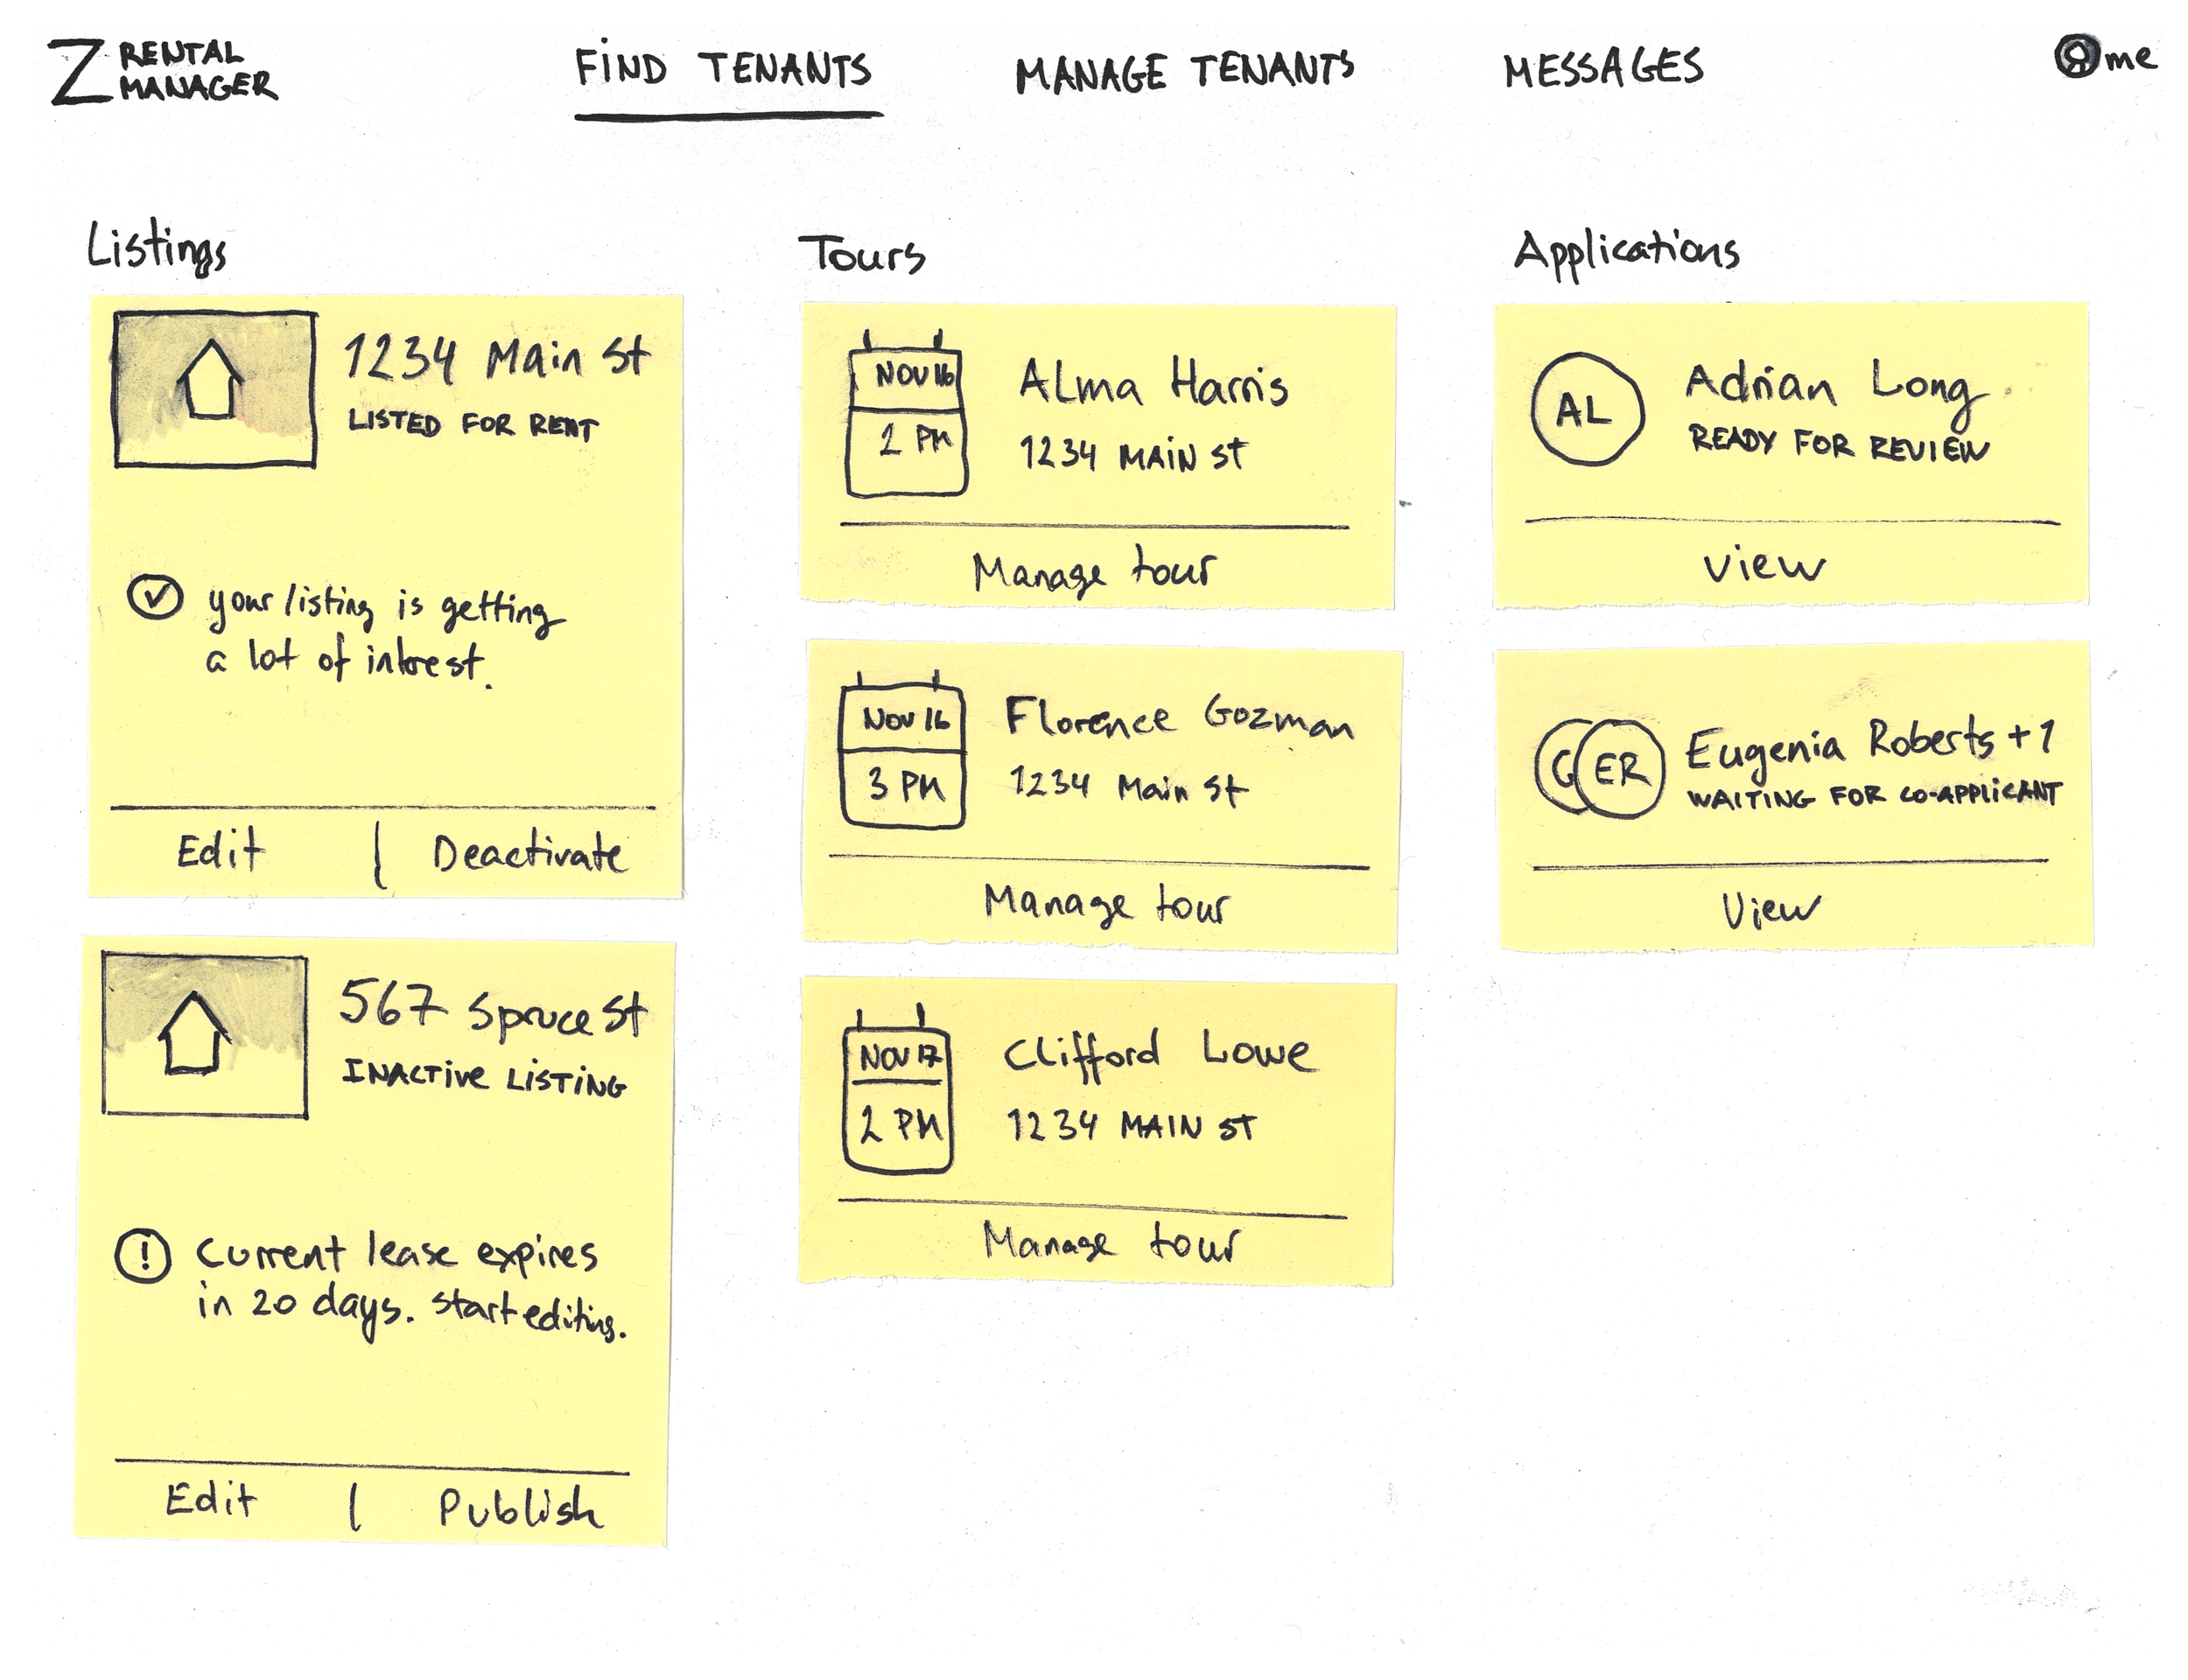 Z RENTAL
MANAGER
FIND TENANTS
MANAGE TENANTS
MESSAGES
me
Listings
1234 Main St
LISTED FOR RENT
your listing is getting
a lot of interest.
Edit | Deactivate
567 Spruce St
INACTIVE LISTING
!
Current lease expires
in 20 days. Start editing.
Edit | Publish
Tours
NOV 16
2 PM
Alma Harris
1234 MAIN St
Manage tour
NOV 16
3 PM
Florence Gozman
1234 Main St
Manage tour
NOV 17
2 PM
Clifford Lowe
1234 MAIN ST
Manage tour
Applications
AL
Adrian Long
READY FOR REVIEW
View
ER
Eugenia Roberts +1
WAITING FOR CO-APPLICANT
View